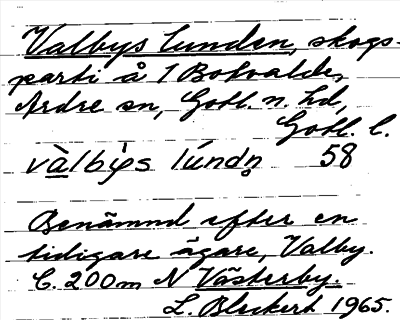 Valbys lunden, skogs-
parti å 1 Botvalde,
Ardre sn, Gotl. n. hd,
Gotl. l.
vàlbỳs lúndn̥ 58
Benämnd efter en
tidigare ägare, Valby.
C. 200m N Västerby.
L. Bleckert 1965.